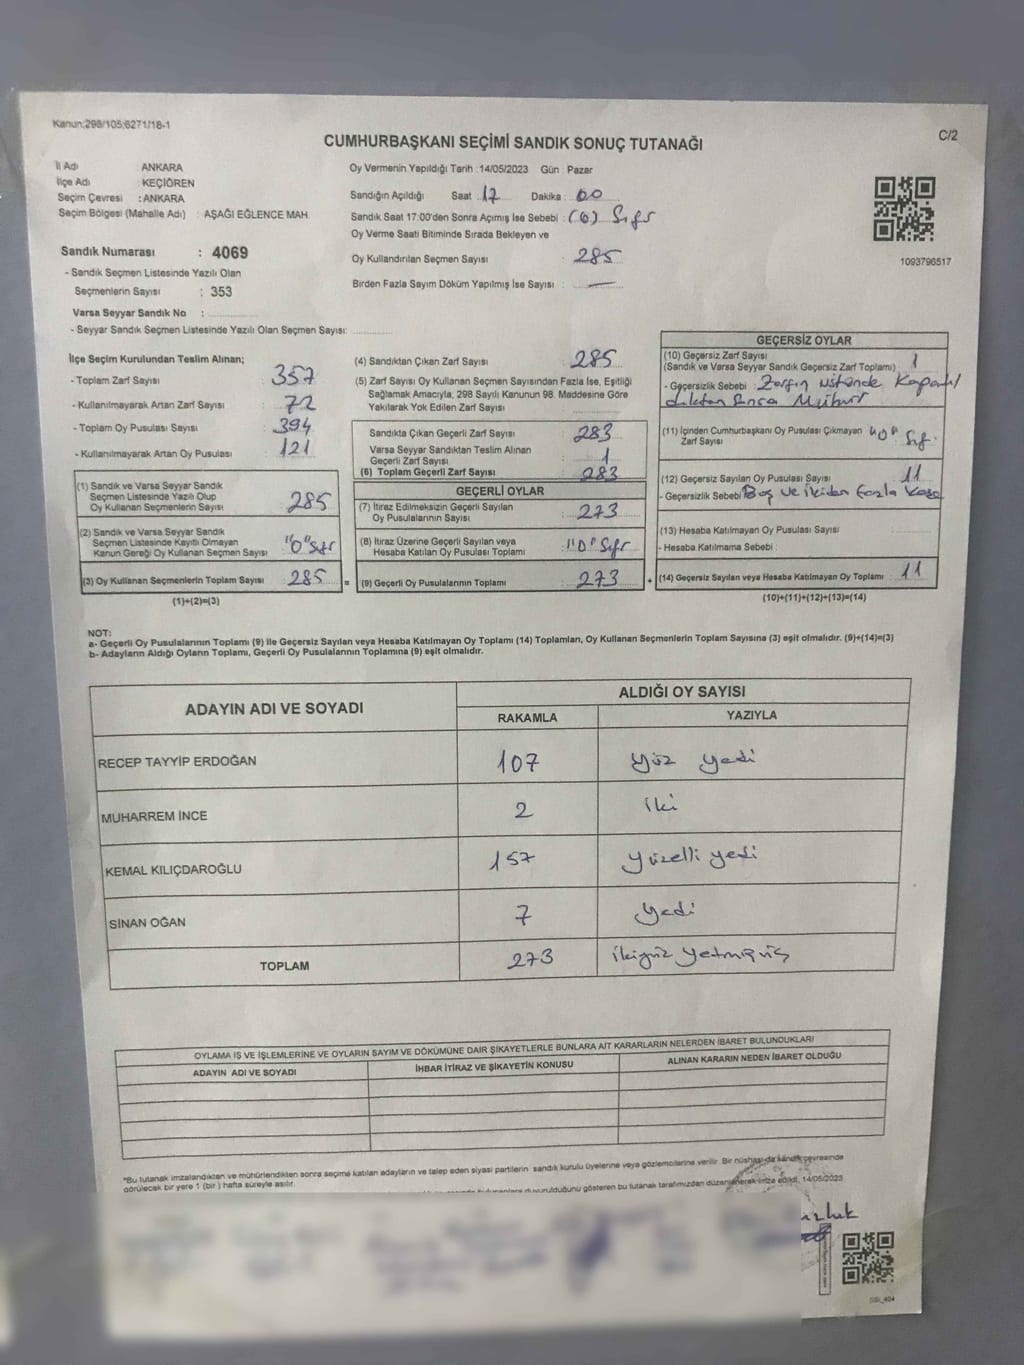 Kanun:298/105;6271/18-1
C/2
CUMHURBAŞKANI SEÇİMİ SANDIK SONUÇ TUTANAĞI
İl Adı ANKARA
İlçe Adı : KEÇİÖREN
Seçim Çevresi : ANKARA
Seçim Bölgesi (Mahalle Adı) : AŞAĞI EĞLENCE MAH
Sandık Numarası : 4069
- Sandık Seçmen Listesinde Yazılı Olan
Seçmenlerin Sayısı : 353
Varsa Seyyar Sandık No :
- Seyyar Sandık Seçmen Listesinde Yazılı Olan Seçmen Sayısı:
Oy Vermenin Yapıldığı Tarih : 14/05/2023 Gün : Pazar
Sandığın Açıldığı Saat 17 Dakika : 00
Sandık Saat 17:00'den Sonra Açımış İse Sebebi : (0) Sıfır
Oy Verme Saati Bitiminde Sırada Bekleyen ve
Oy Kullandırılan Seçmen Sayısı : 285
Birden Fazla Sayım Döküm Yapılmış İse Sayısı : —
1093796517
İlçe Seçim Kurulundan Teslim Alınan;
- Toplam Zarf Sayısı : 357
- Kullanılmayarak Artan Zarf Sayısı : 72
- Toplam Oy Pusulası Sayısı : 394
- Kullanılmayarak Artan Oy Pusulası : 121
(1) Sandık ve Varsa Seyyar Sandık
Seçmen Listesinde Yazılı Olup
Oy Kullanan Seçmenlerin Sayısı : 285
(2) Sandık ve Varsa Seyyar Sandık
Seçmen Listesinde Kayıtlı Olmayan
Kanun Gereği Oy Kullanan Seçmen Sayısı : "0" Sıfır
(3) Oy Kullanan Seçmenlerin Toplam Sayısı : 285 =
(1)+(2)=(3)
(4) Sandıktan Çıkan Zarf Sayısı : 285
(5) Zarf Sayısı Oy Kullanan Seçmen Sayısından Fazla İse, Eşitliği
Sağlamak Amacıyla, 298 Sayılı Kanunun 98. Maddesine Göre
Yakılarak Yok Edilen Zarf Sayısı :
Sandıkta Çıkan Geçerli Zarf Sayısı : 283
Varsa Seyyar Sandıktan Teslim Alınan
Geçerli Zarf Sayısı : 1
(6) Toplam Geçerli Zarf Sayısı : 283
GEÇERLİ OYLAR
(7) İtiraz Edilmeksizin Geçerli Sayılan
Oy Pusulalarının Sayısı : 273
(8) İtiraz Üzerine Geçerli Sayılan veya
Hesaba Katılan Oy Pusulası Toplamı : "0" Sıfır
(9) Geçerli Oy Pusulalarının Toplamı : 273 +
GEÇERSİZ OYLAR
(10) Geçersiz Zarf Sayısı
(Sandık ve Varsa Seyyar Sandık Geçersiz Zarf Toplamı) : 1
- Geçersizlik Sebebi : Zarfın üstünde Kapatıl
dıktan Sonra Mühür
(11) İçinden Cumhurbaşkanı Oy Pusulası Çıkmayan
Zarf Sayısı : "0" Sıf.
(12) Geçersiz Sayılan Oy Pusulası Sayısı : 11
- Geçersizlik Sebebi : Boş ve ikiden fazla Kaşe
(13) Hesaba Katılmayan Oy Pusulası Sayısı :
- Hesaba Katılmama Sebebi :
(14) Geçersiz Sayılan veya Hesaba Katılmayan Oy Toplamı : 11
(10)+(11)+(12)+(13)=(14)
NOT:
a- Geçerli Oy Pusulalarının Toplamı (9) ile Geçersiz Sayılan veya Hesaba Katılmayan Oy Toplamı (14) Toplamları, Oy Kullanan Seçmenlerin Toplam Sayısına (3) eşit olmalıdır. (9)+(14)=(3)
b- Adayların Aldığı Oyların Toplamı, Geçerli Oy Pusulalarının Toplamına (9) eşit olmalıdır.
ADAYIN ADI VE SOYADI ALDIĞI OY SAYISI
RAKAMLA YAZIYLA
RECEP TAYYİP ERDOĞAN 107 Yüz yedi
MUHARREM İNCE 2 iki
KEMAL KILIÇDAROĞLU 157 Yüzelli yedi
SİNAN OĞAN 7 Yedi
TOPLAM 273 ikiyüz Yetmişüç
OYLAMA İŞ VE İŞLEMLERİNE VE OYLARIN SAYIM VE DÖKÜMÜNE DAİR ŞİKAYETLERLE BUNLARA AİT KARARLARIN NELERDEN İBARET BULUNDUKLARI
ADAYIN ADI VE SOYADI İHBAR İTİRAZ VE ŞİKAYETİN KONUSU ALINAN KARARIN NEDEN İBARET OLDUĞU
*Bu tutanak imzalandıktan ve mühürlendikten sonra seçime katılan adayların ve talep eden siyasi partilerin sandık kurulu üyelerine veya gözlemcilerine verilir. Bir nüshası da sandık çevresinde
görülecek bir yere 1 (bir) hafta süreyle asılır.
duyurulduğunu gösteren bu tutanak tarafımızdan düzenlenerek imza edildi. 14/05/2023